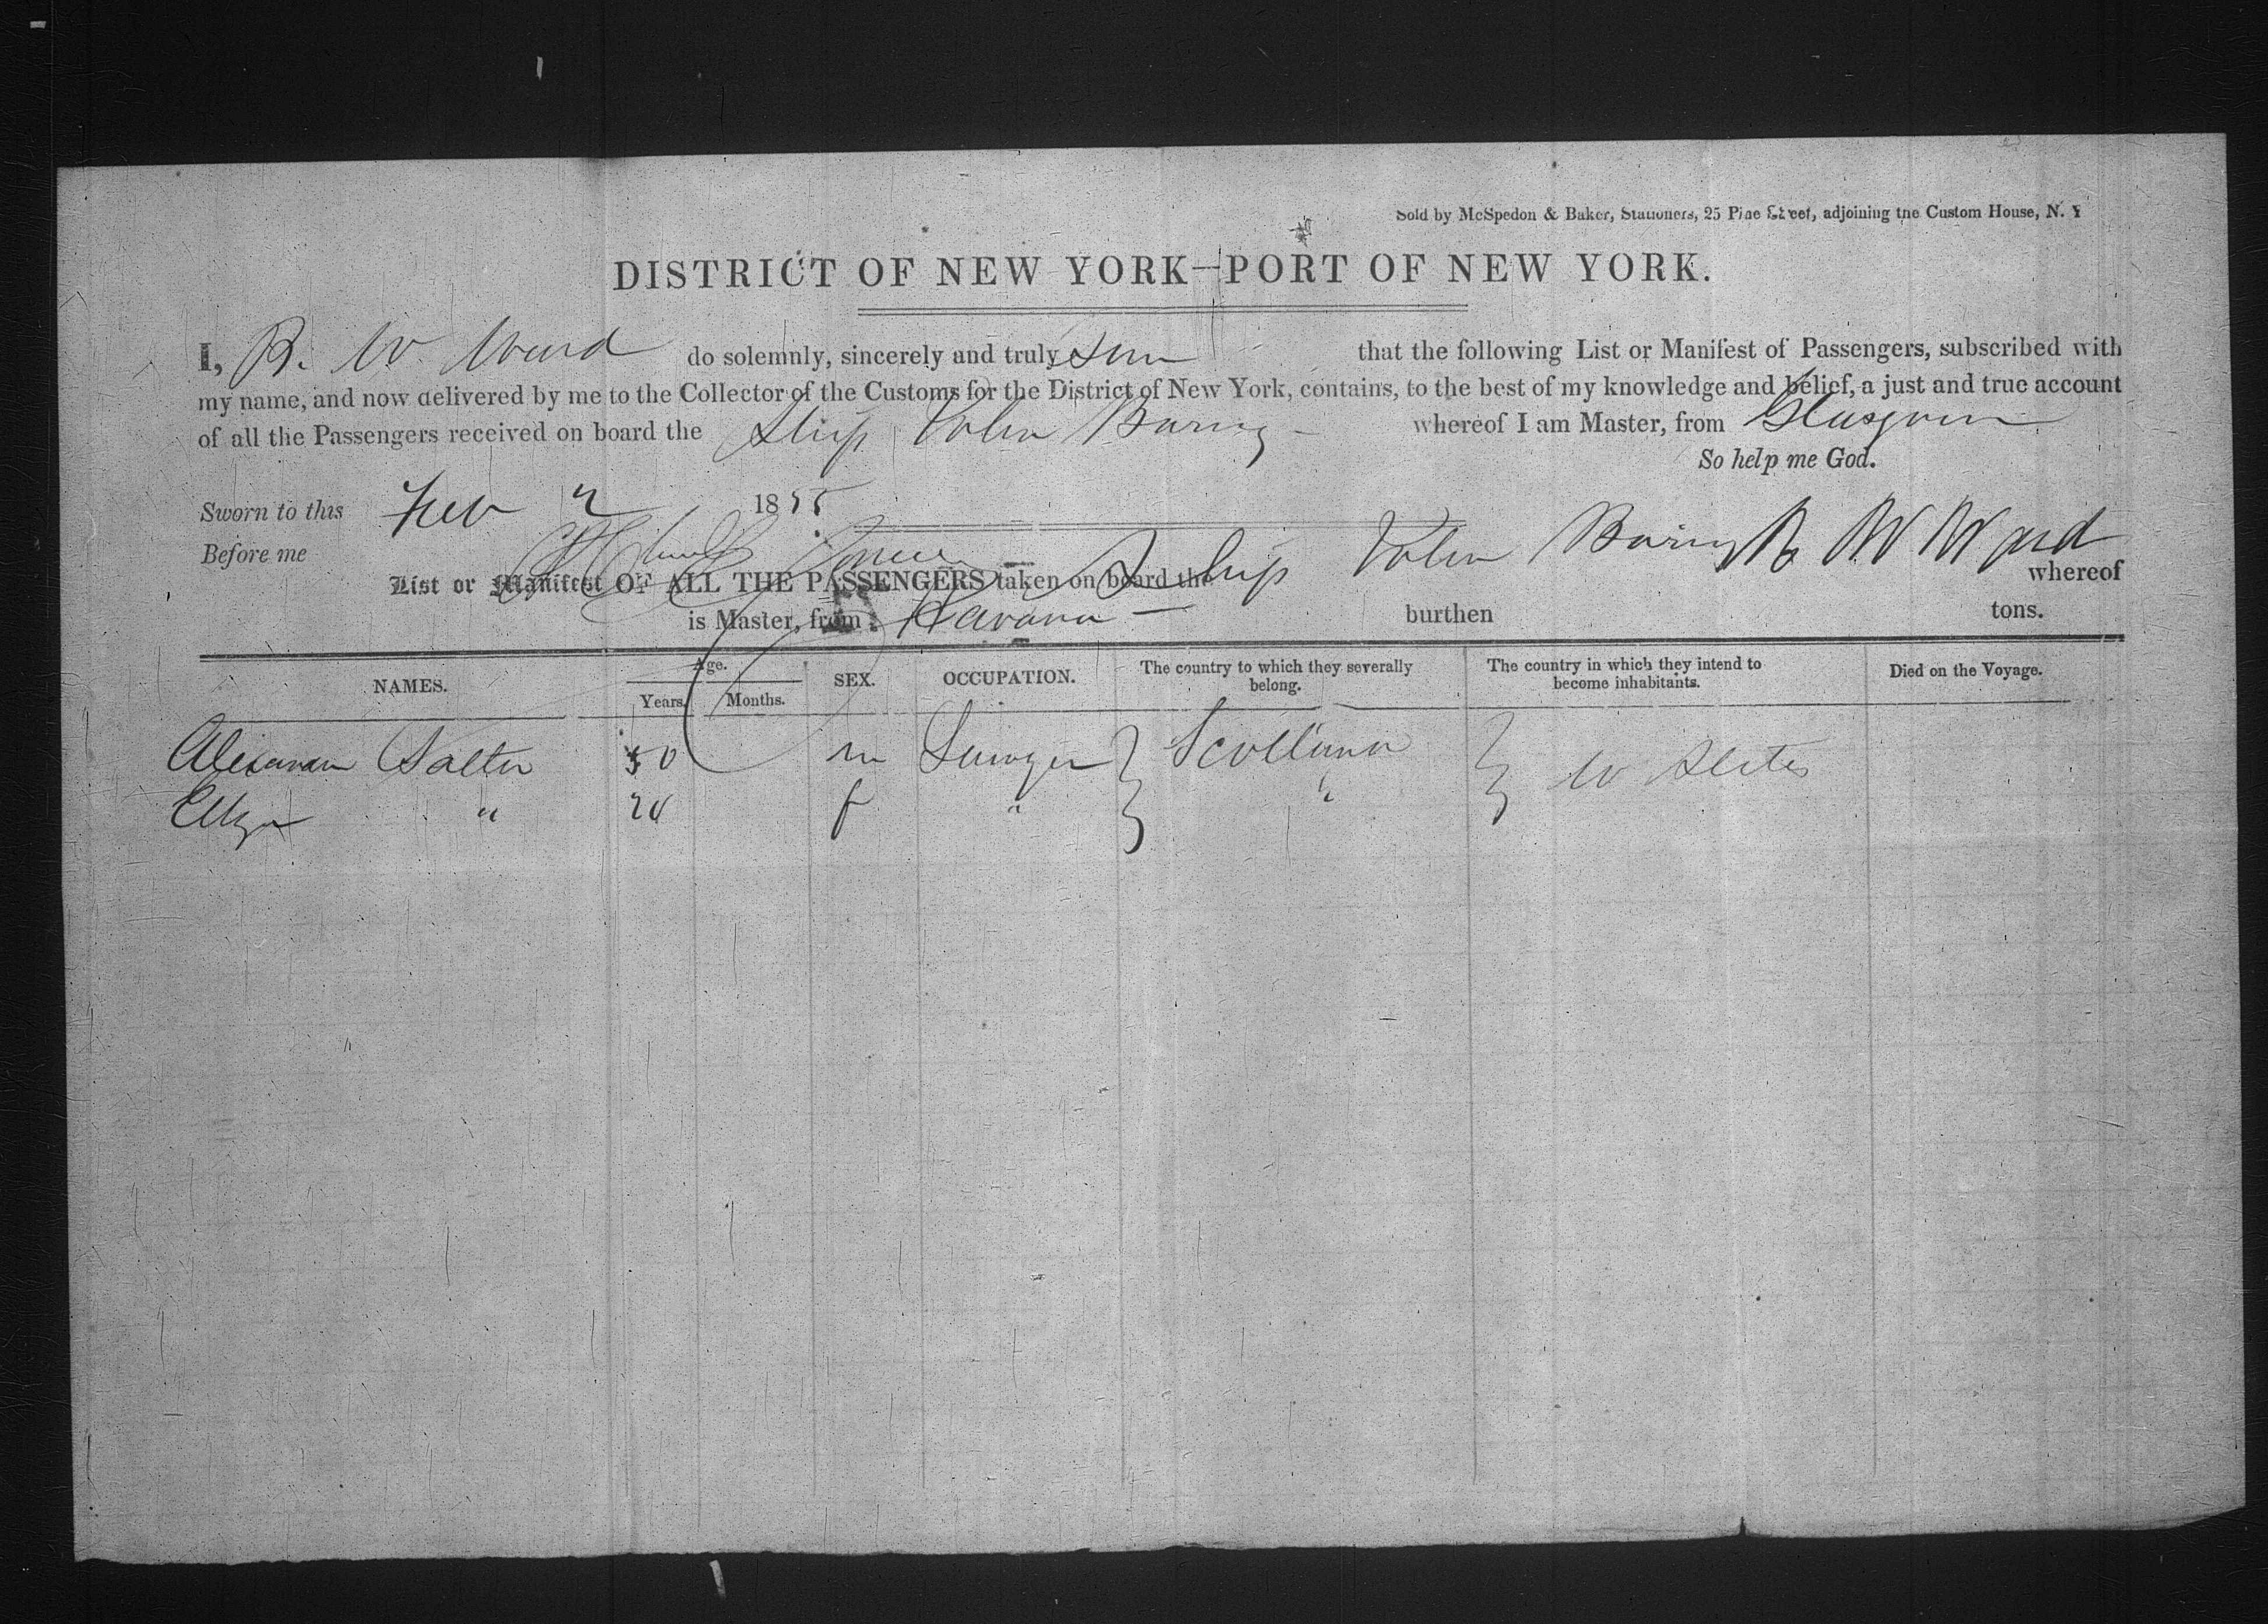 Sold by McSpedon & Baker, Stationers, 25 Pine Street, adjoining the Custom House, N. Y
DISTRICT OF NEW YORK—PORT OF NEW YORK.
I, R. W. Ward do solemnly, sincerely and truly that the following List or Manifest of Passengers, subscribed with
my name, and now delivered by me to the Collector of the Customs for the District of New York, contains, to the best of my knowledge and belief, a just and true account
of all the Passengers received on board the Ship John Baring whereof I am Master, from Glasgow
So help me God.
Sworn to this Feb 2 1855
Before me R W Ward
List or Manifest OF ALL THE PASSENGERS taken on board the Ship John Baring whereof
is Master, from Havana burthen tons.
NAMES. Age. Years. Months. SEX. OCCUPATION. The country to which they severally belong. The country in which they intend to become inhabitants. Died on the Voyage.
Alexander Salter 50 m Lawyer Scotland U States
Eliza " 24 f " "